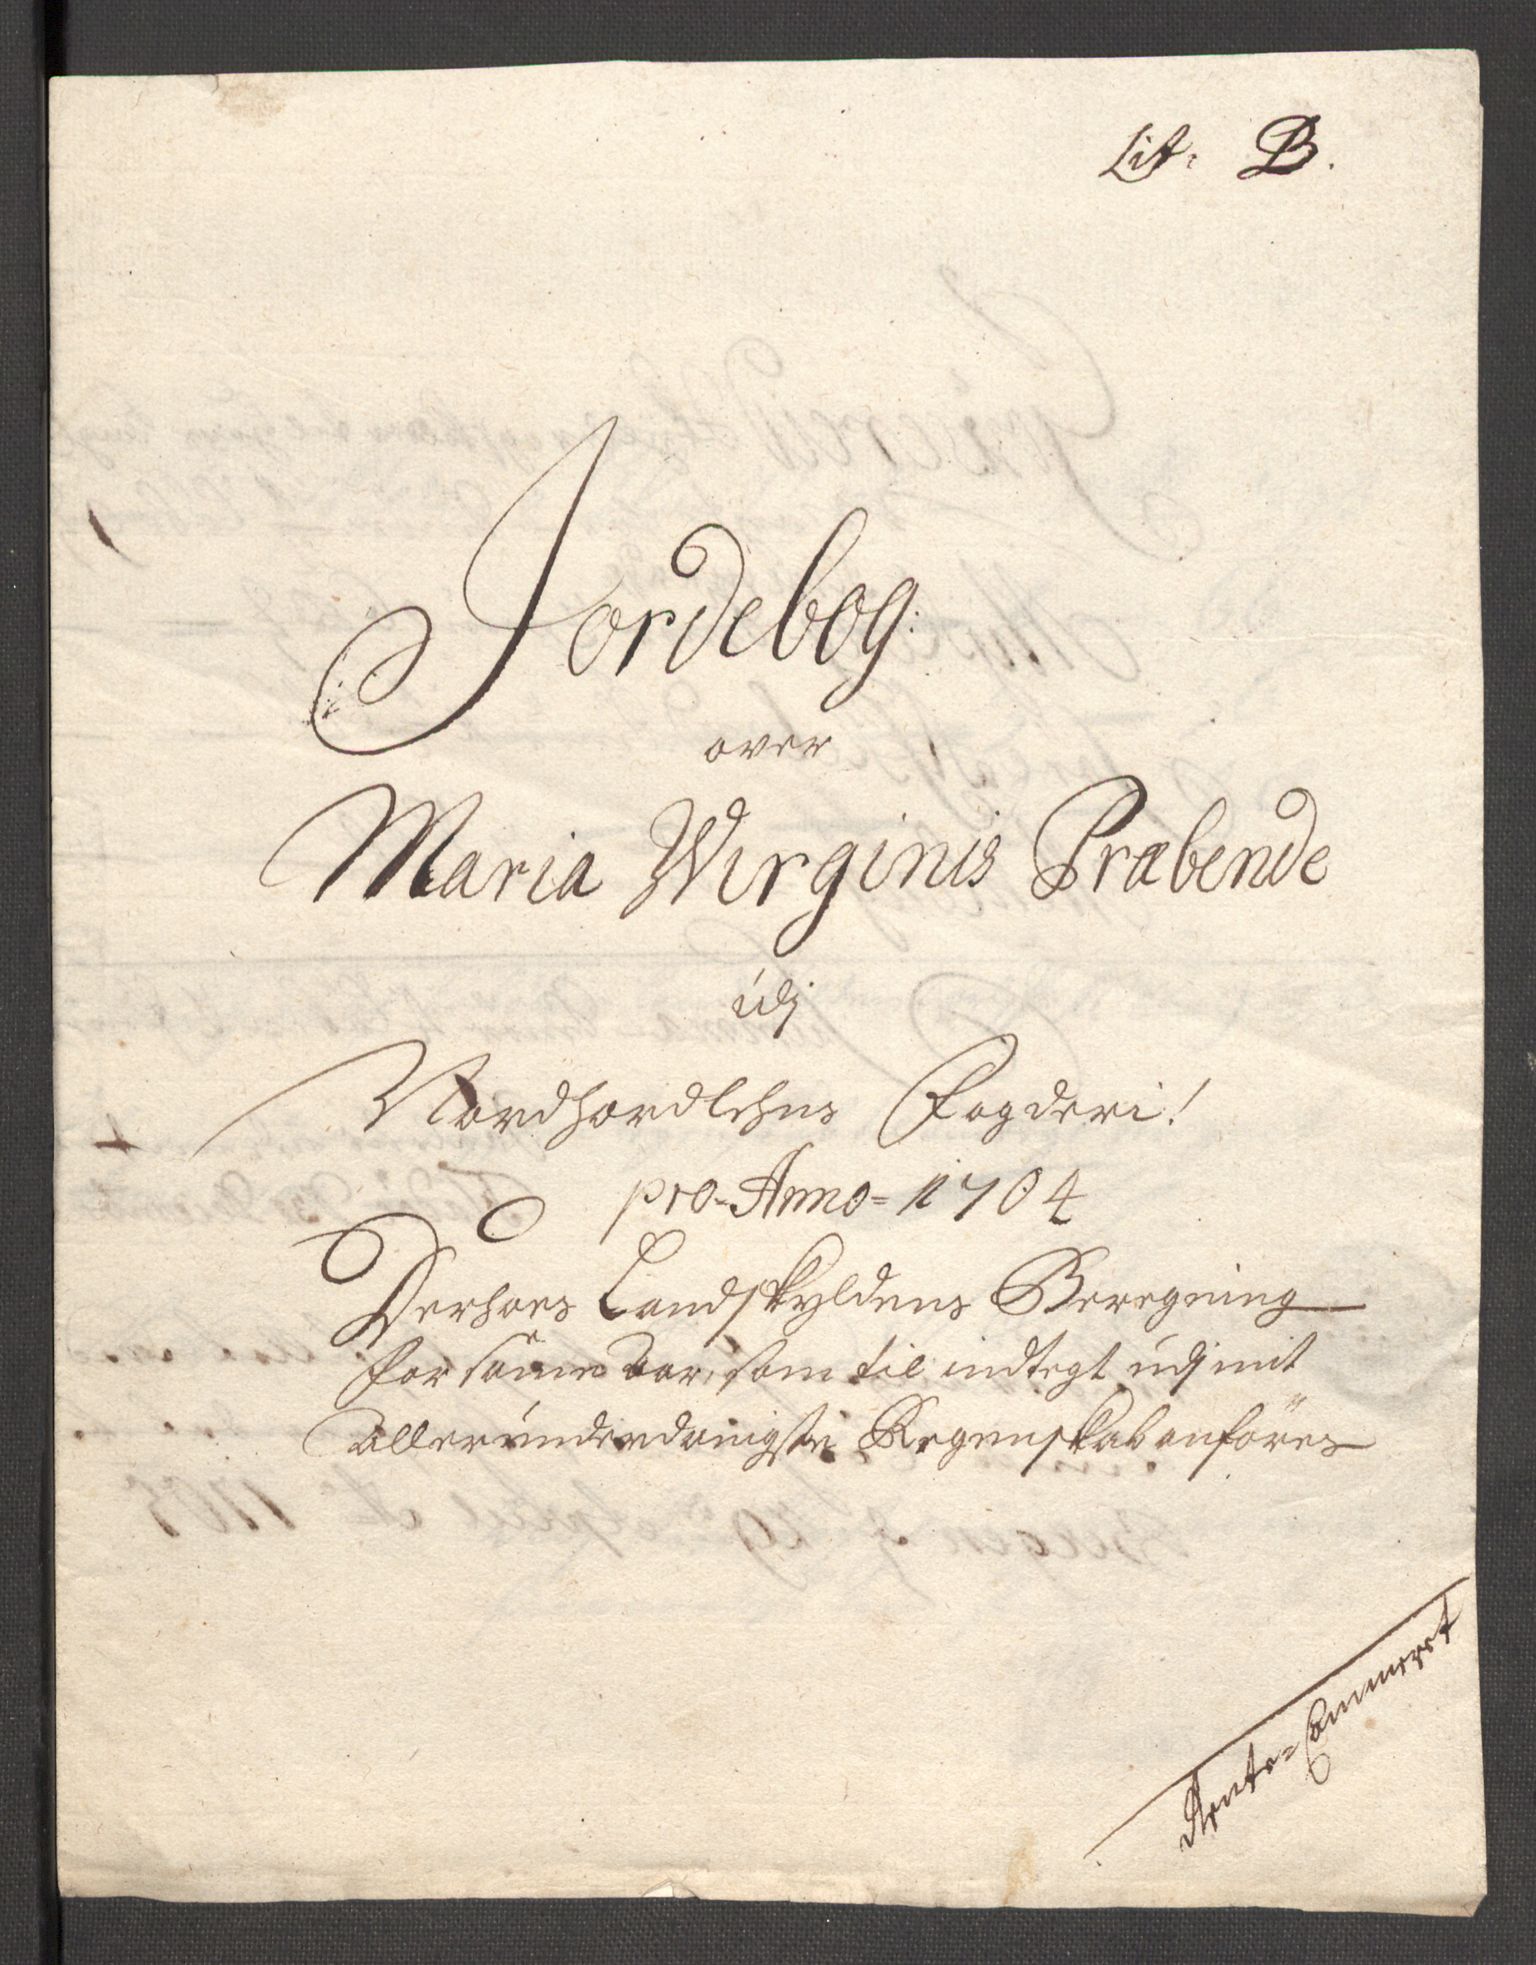 Lit: B.
Jordebog:
over
Maria Wirginis Præbende
udj
Nordhordlehns Fogderi!
pro-Anno=1704
Derhoes Landskyldens Beregning
for same Aar, som til indtegt udj mit
allerunderdanigste Regenskab anföres
Rente=Cammeret